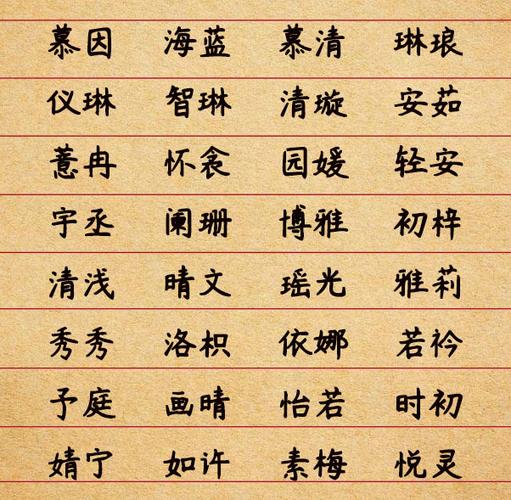 慕因 海蓝 慕清 琳琅
仪琳 智琳 清璇 安茹
薏冉 怀衾 园媛 轻安
宇丞 阑珊 博雅 初梓
清浅 晴文 瑶光 雅莉
秀秀 洛枳 依娜 若衿
予庭 画晴 怡若 时初
婧宁 如许 素梅 悦灵